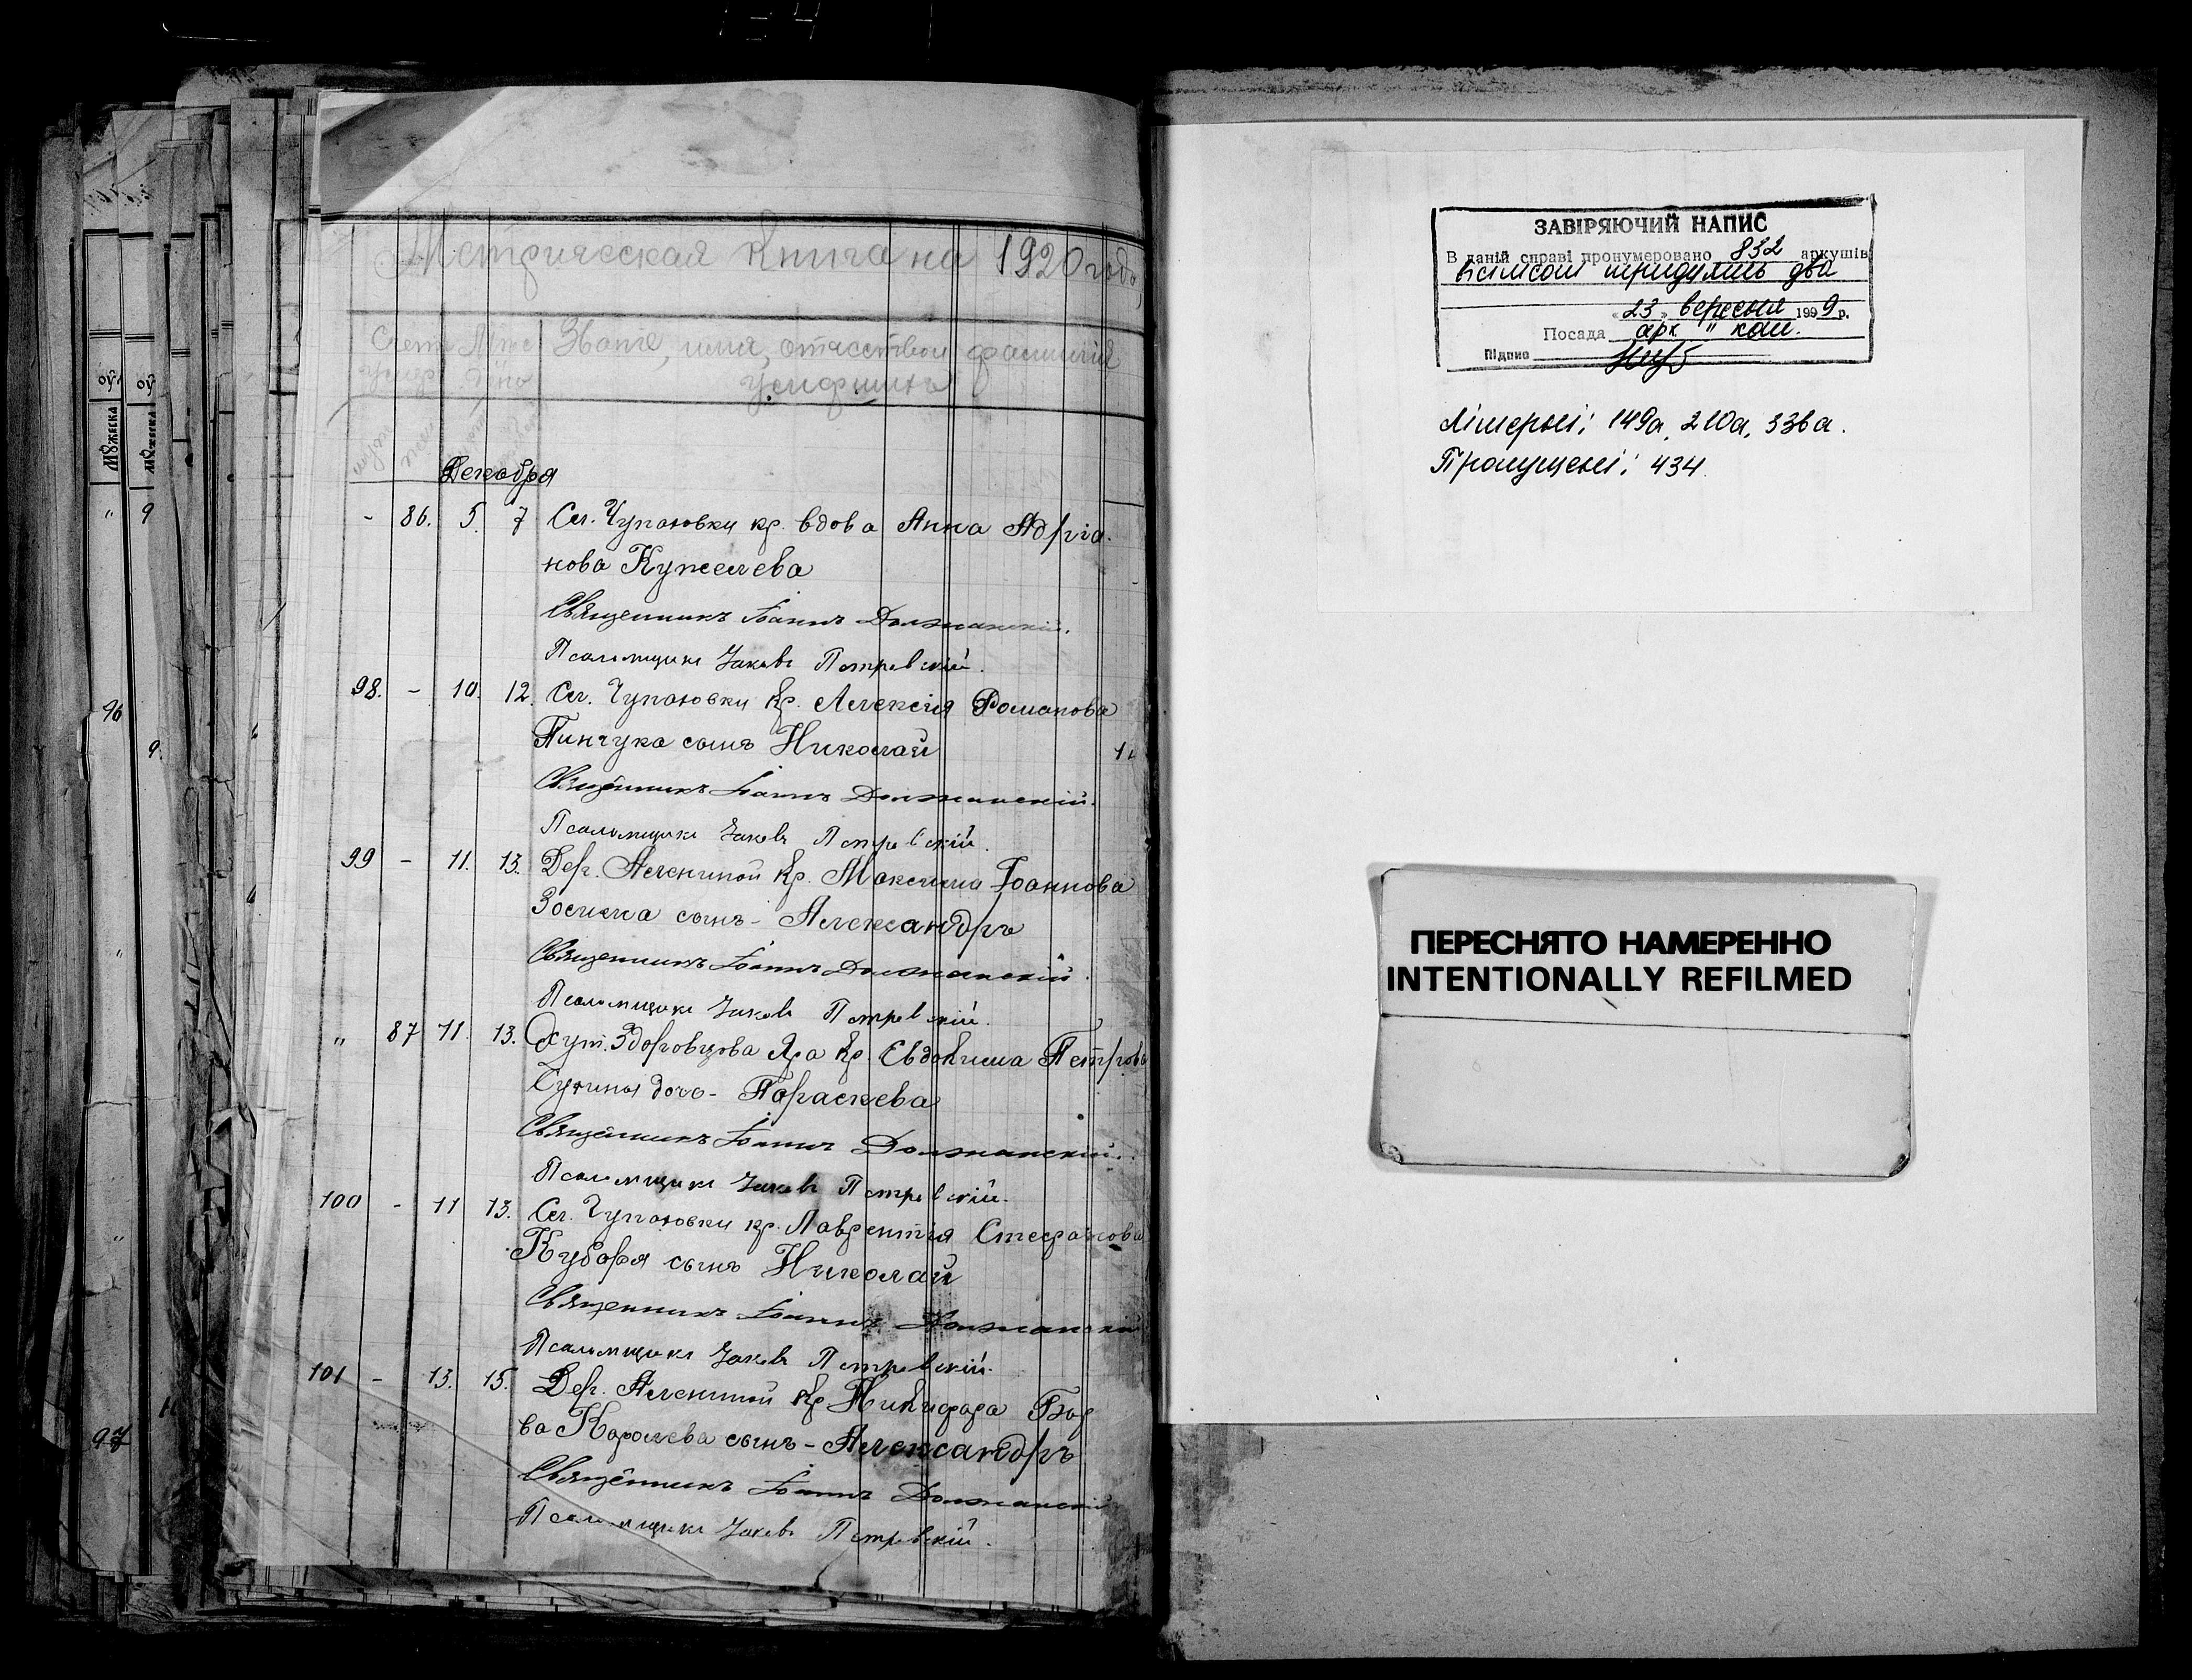 Метрическая книга на 1920 годъ,
Счетъ Мѣс Званіе, имя, отчество и фамилія
умер. дно умершихъ
муж жен
Декабря
- 86. 5. 7 Сл. Чупаховки кр. вдова Анна Адріа-
нова Кужелева
Священникъ Іоаннъ Должанскій.
Псаломщикъ Іаковъ Петровскій.
98. - 10. 12. Сл. Чупаховки кр. Алексія Романова
Пинчука сынъ Николай
Священникъ Іоаннъ Должанскій.
Псаломщикъ Іаковъ Петровскій.
99 - 11. 13. Дер. Алениной кр. Максима Іоаннова
Зосима сынъ - Александръ
Священникъ Іоаннъ Должанскій.
Псаломщикъ Іаковъ Петровскій.
„ 87 11. 13. Хут. Здоровцова Яра кр. Евдокима Петрова
дочь - Параскева
Священникъ Іоаннъ Должанскій.
Псаломщикъ Іаковъ Петровскій.
100 - 11 13. Сл. Чупаховки кр. Лаврентія Стефанова
Кубаря сынъ Николай
Священникъ Іоаннъ Должанскій
Псаломщикъ Іаковъ Петровскій.
101 - 13. 15. Дер. Алениной кр Никифора
ва Королева сынъ - Александръ
Священникъ Іоаннъ Должанскій
Псаломщикъ Іаковъ Петровскій.
" 9
96
9.
97
ЗАВІРЯЮЧИЙ НАПИС
В даній справі пронумеровано 832 аркушів
вісімсот тридцять два
«23» вересня 1999 р.
Посада арк
Підпис
Літерні: 149а, 210а, 336а.
Пропущені: 434.
ПЕРЕСНЯТО НАМЕРЕННО
INTENTIONALLY REFILMED